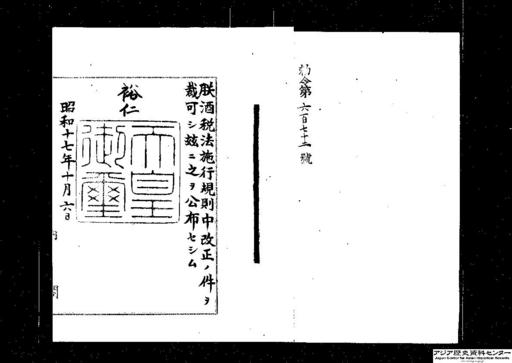 勅令第六百七十一號
朕酒税法施行規則中改正ノ件ヲ
裁可シ玆ニ之ヲ公布セシム
裕仁
天皇
御璽
昭和十七年十月六日
内閣
アジア歴史資料センター
Japan Center for Asian Historical Records